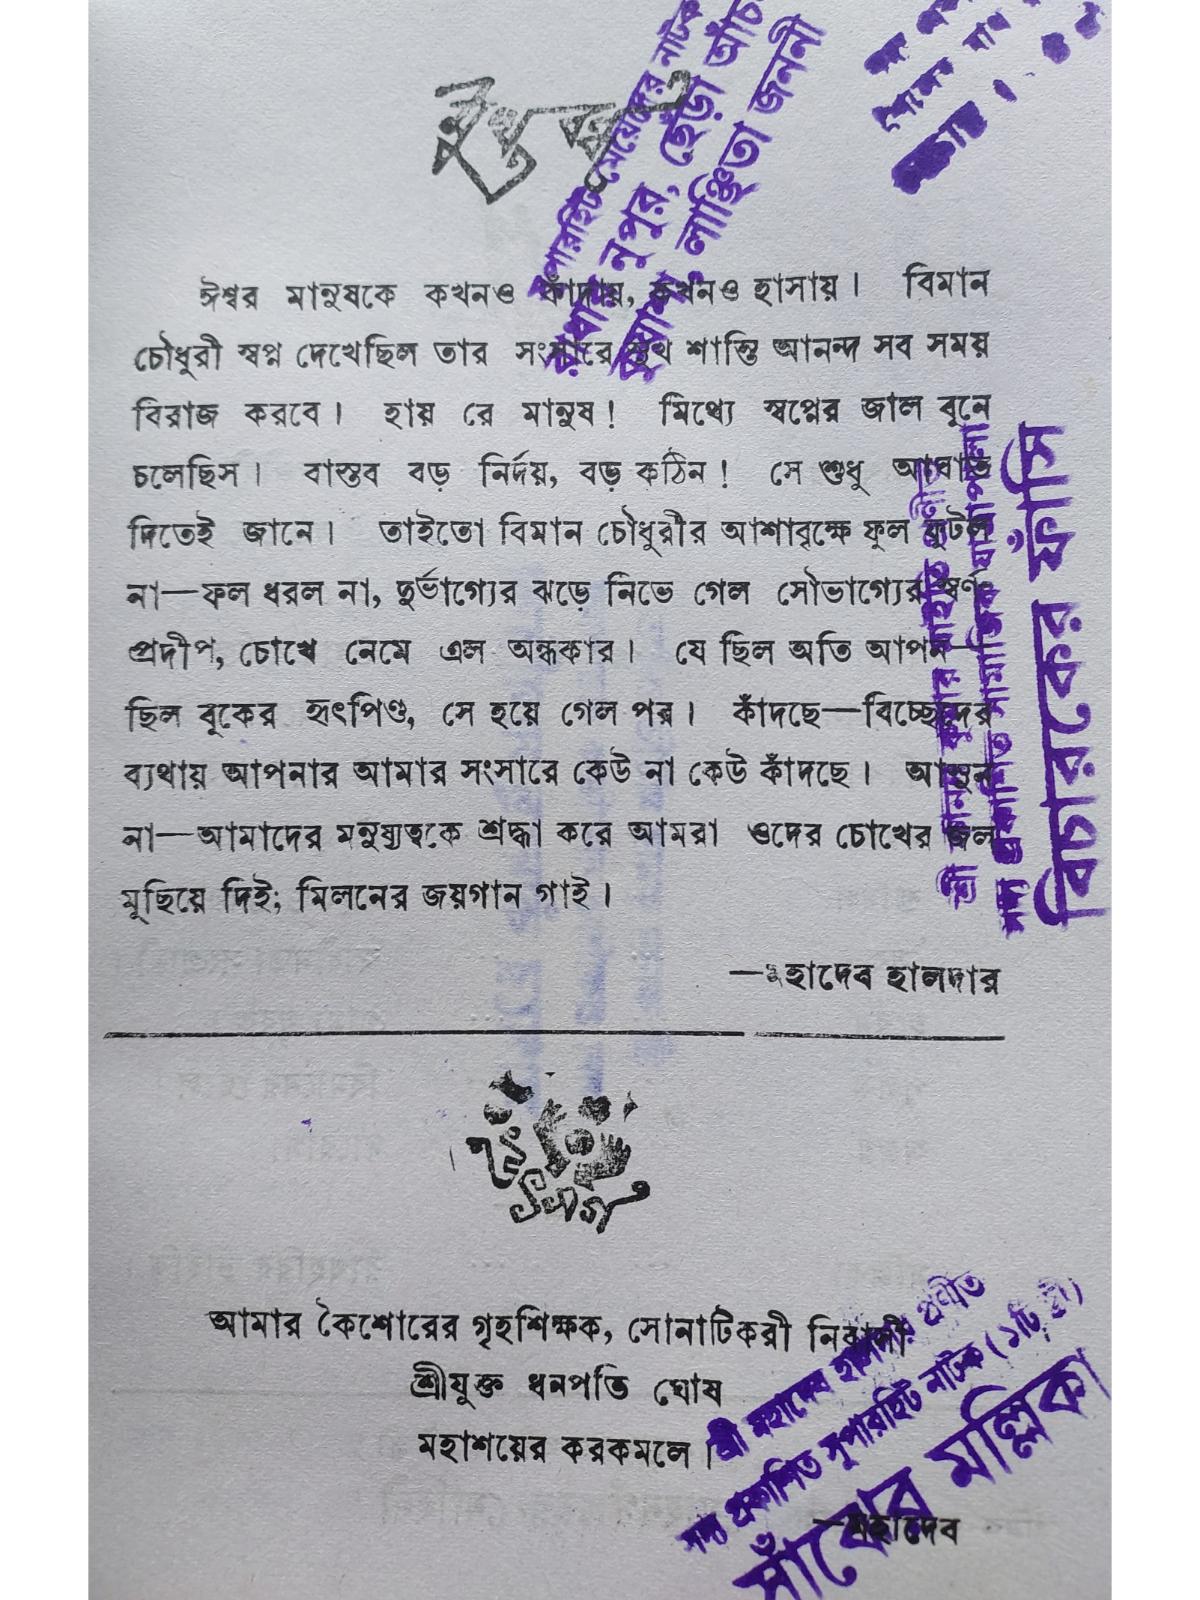 মুখবন্ধ
ঈশ্বর মানুষকে কখনও কাঁদায়, কখনও হাসায়। বিমান
চৌধুরী স্বপ্ন দেখেছিল তার সংসারে সুখ শান্তি আনন্দ সব সময়
বিরাজ করবে। হায় রে মানুষ! মিথ্যে স্বপ্নের জাল বুনে
চলেছিস। বাস্তব বড় নির্দয়, বড় কঠিন! সে শুধু আঘাত
দিতেই জানে। তাইতো বিমান চৌধুরীর আশাবৃক্ষে ফুল ফুটল
না—ফল ধরল না, দুর্ভাগ্যের ঝড়ে নিভে গেল সৌভাগ্যের স্বর্ণ-
প্রদীপ, চোখে নেমে এল অন্ধকার। যে ছিল অতি আপন—
ছিল বুকের হৃৎপিণ্ড, সে হয়ে গেল পর। কাঁদছে—বিচ্ছেদের
ব্যথায় আপনার আমার সংসারে কেউ না কেউ কাঁদছে। আসুন
না—আমাদের মনুষ্যত্বকে শ্রদ্ধা করে আমরা ওদের চোখের জল
মুছিয়ে দিই; মিলনের জয়গান গাই।
—মহাদেব হালদার
উৎসর্গ
আমার কৈশোরের গৃহশিক্ষক, সোনাটিকরী নিবাসী
শ্রীযুক্ত ধনপতি ঘোষ
মহাশয়ের করকমলে।
—মহাদেব
সুপারহিট মেয়েদের নাটক
রাধার নুপুর, ছেঁড়া আঁচ
লাঞ্ছিতা জননী
বিচারকের ফাঁসি
শ্রী মহাদেব হালদার প্রণীত
সদ্য প্রকাশিত সুপারহিট নাটক (১টি স্ত্রী)
সাঁঝের মল্লিকা